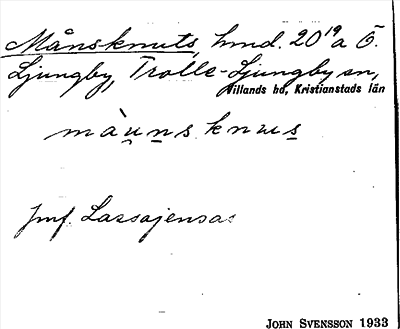 Månsknuts, hmd. 20¹⁹a Ö.
Ljungby, Trolle-Ljungby sn,
Villands hd, Kristianstads län
màu̯n̠s knʉs̠
Jmf. Lassajensas
JOHN SVENSSON 1933